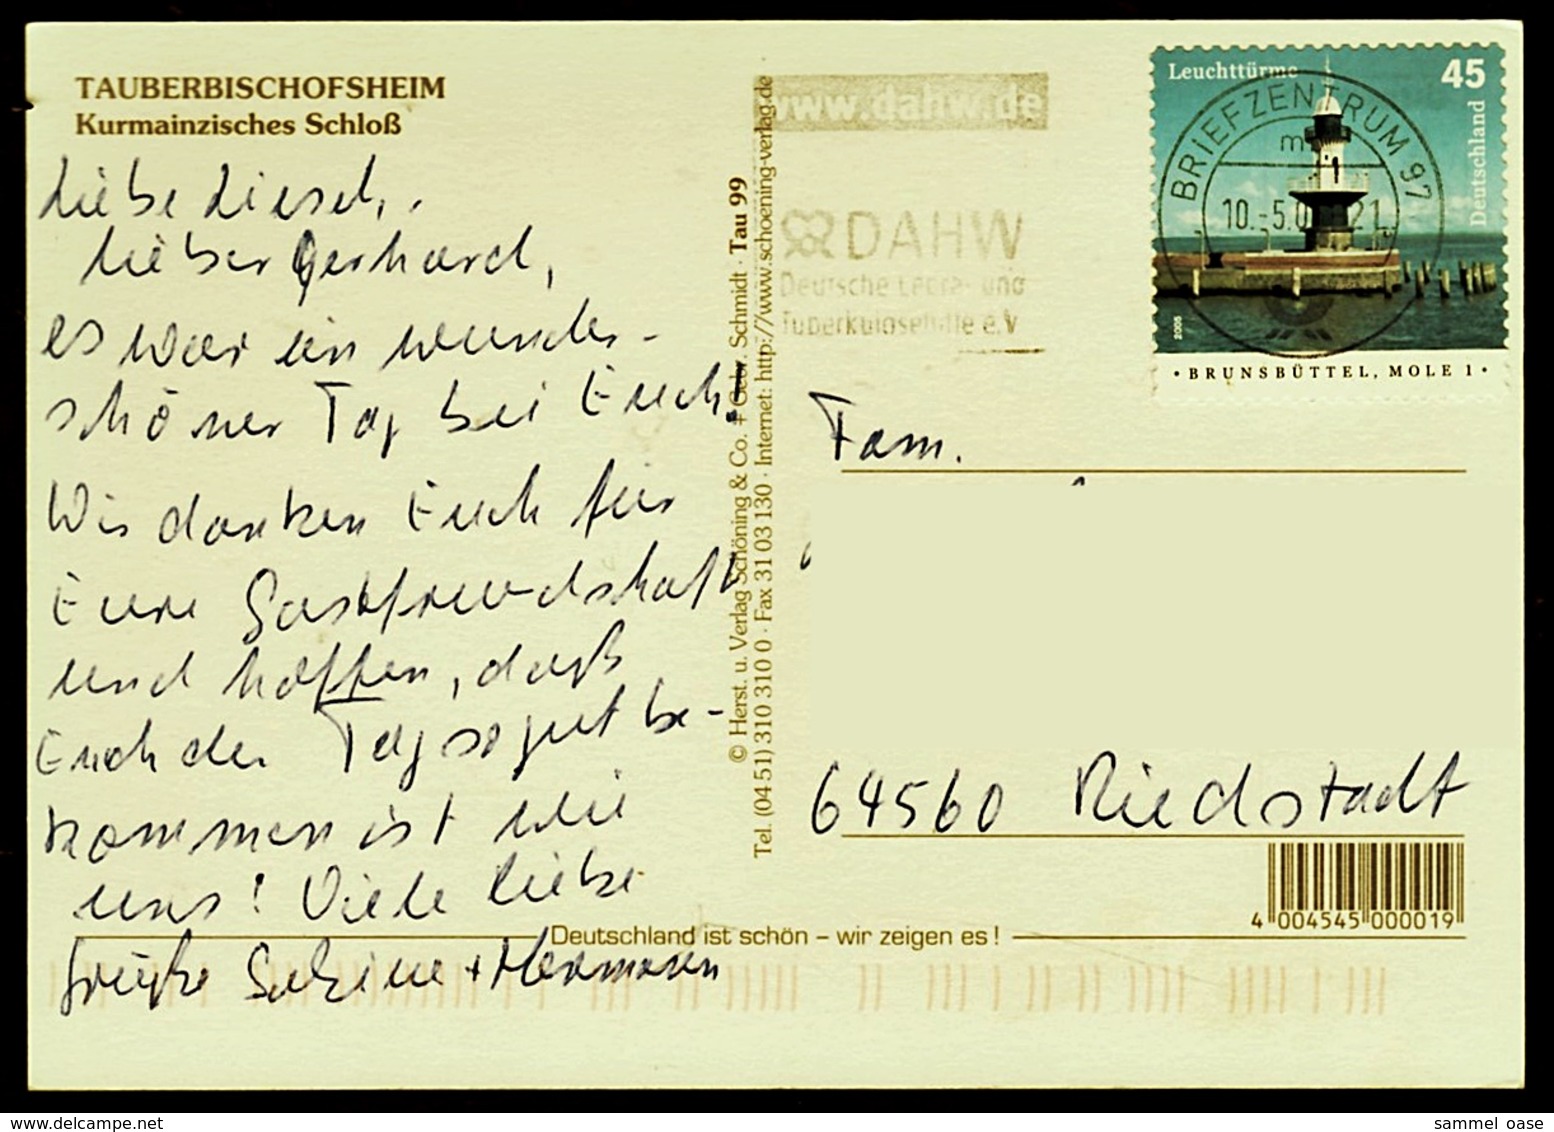 TAUBERBISCHOFSHEIM
Kurmainzisches Schloß
Liebe
lieber Gerhard,
es war ein wunder-
schöner Tag bei Euch.
Wir danken Euch für
Eure Gastfreundschaft
und hoffen, daß
Euch der Tag so gut be-
kommen ist wie
uns! Viele liebe
Grüße Sabine + Hermann
© Herst. u. Verlag Schöning & Co. + Gebr. Schmidt · Tau 99
Tel. (04 51) 310 310 0 · Fax 31 03 130 · Internet: http://www.schoening-verlag.de
www.dahw.de
DAHW
Deutsche Lepra- und
Tuberkulosehilfe e.V
Leuchttürme
45
Deutschland
2005
• BRUNSBÜTTEL, MOLE 1 •
BRIEFZENTRUM 97
10.-5.0 21
Fam.
64560 Riedstadt
4 004545 000019
Deutschland ist schön – wir zeigen es!
sammel oase